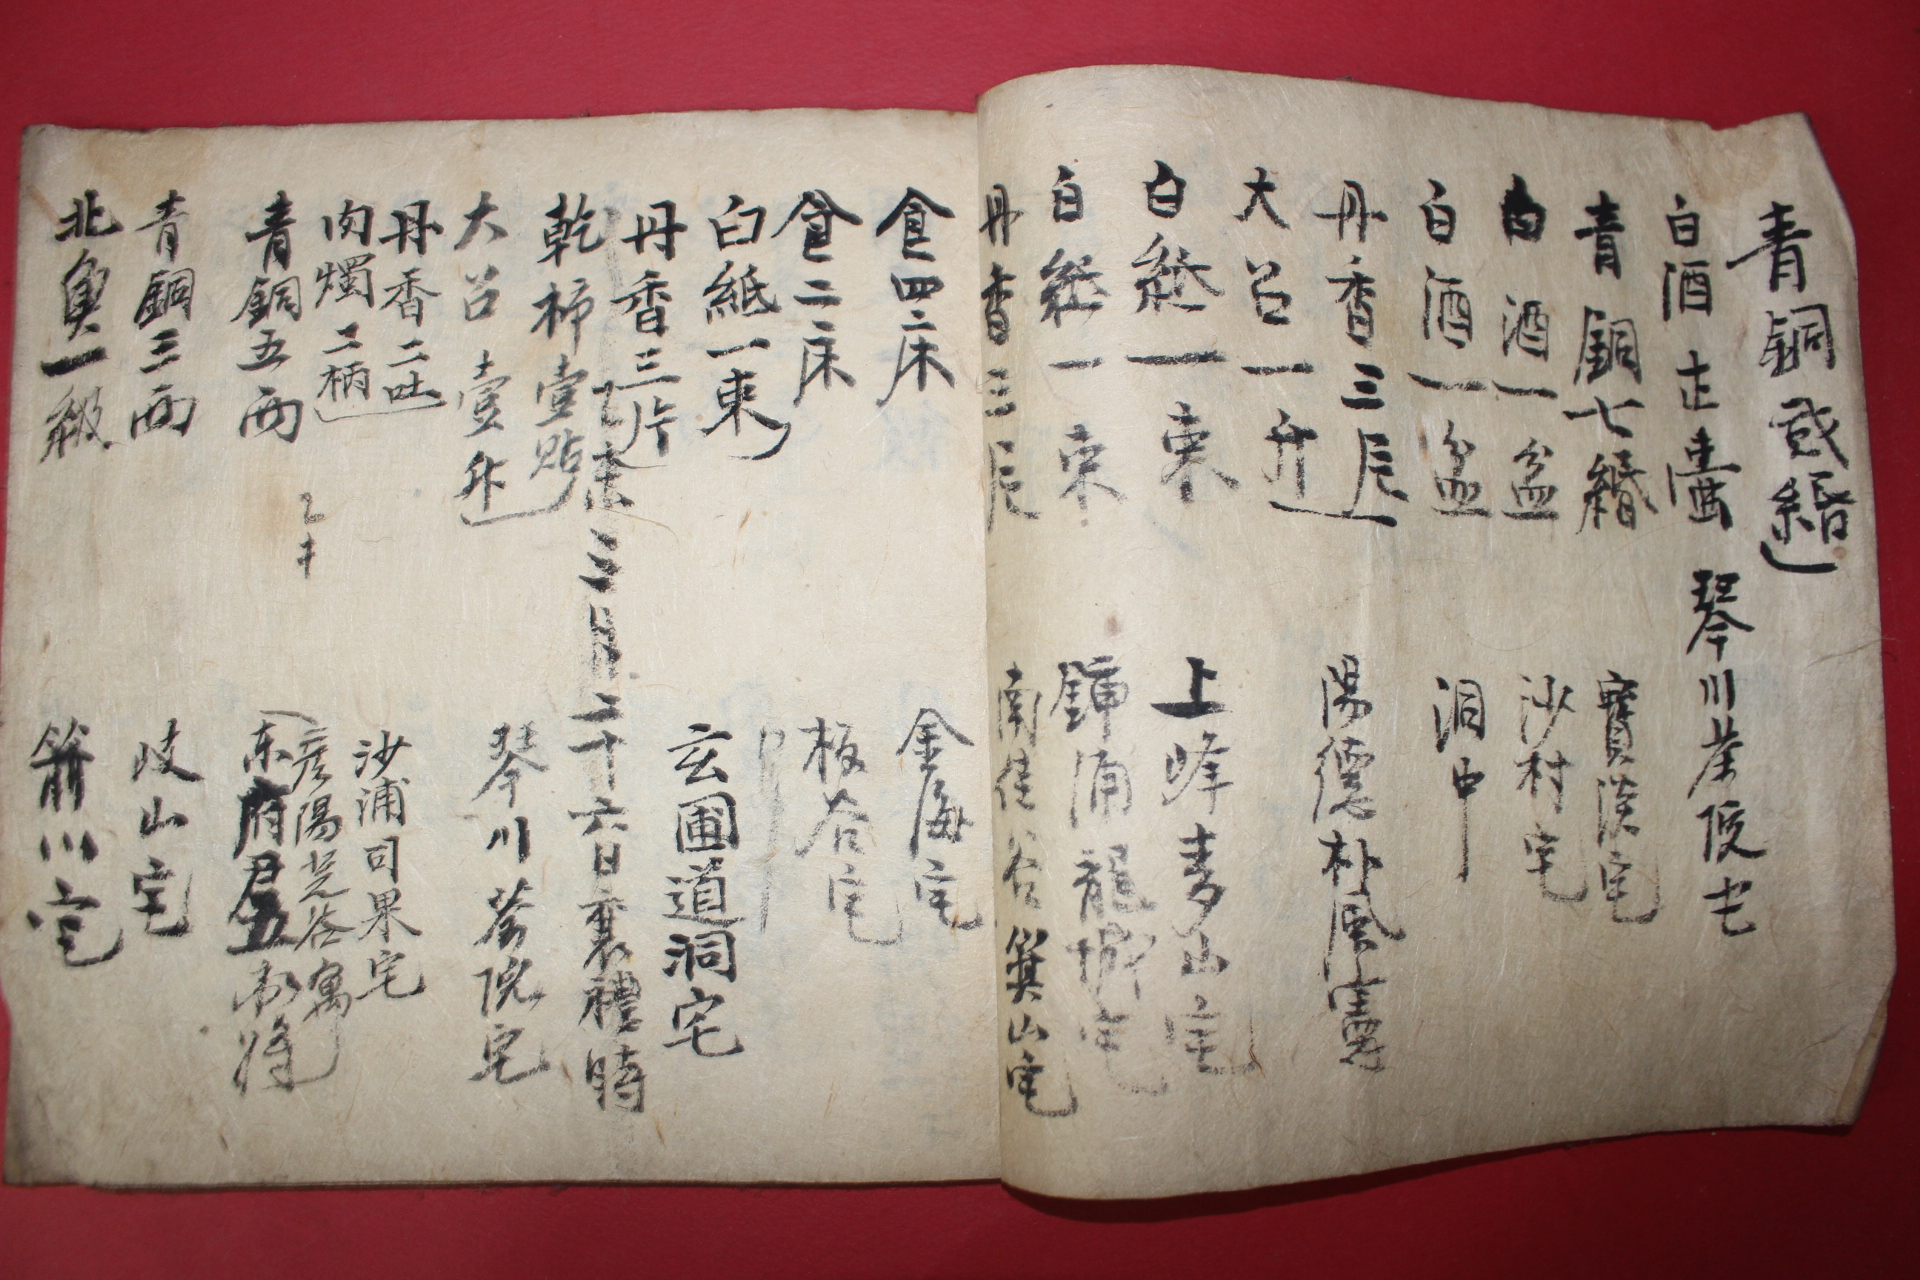 青銅貳緡
白酒壹壺 琴川 宅
青銅七緡 寶 宅
白酒一盆 沙村宅
白酒一盆 洞中
丹香三 陽德朴風憲
大召一升
白紙一束 上峰青山宅
白紙一束 浦龍城宅
丹香三 南佳谷箕山宅
食四床 金海宅
食二床 板谷宅
白紙一束
丹香三片 玄圃道洞宅
三月二十六日襄禮時
乾柿壹貼
大召壹升 琴川 院宅
丹香二吐
肉燭二柄 沙浦司果宅
彦陽 谷寓
青銅五兩 东府君
青銅三兩 岐山宅
北魚一級 箭川宅